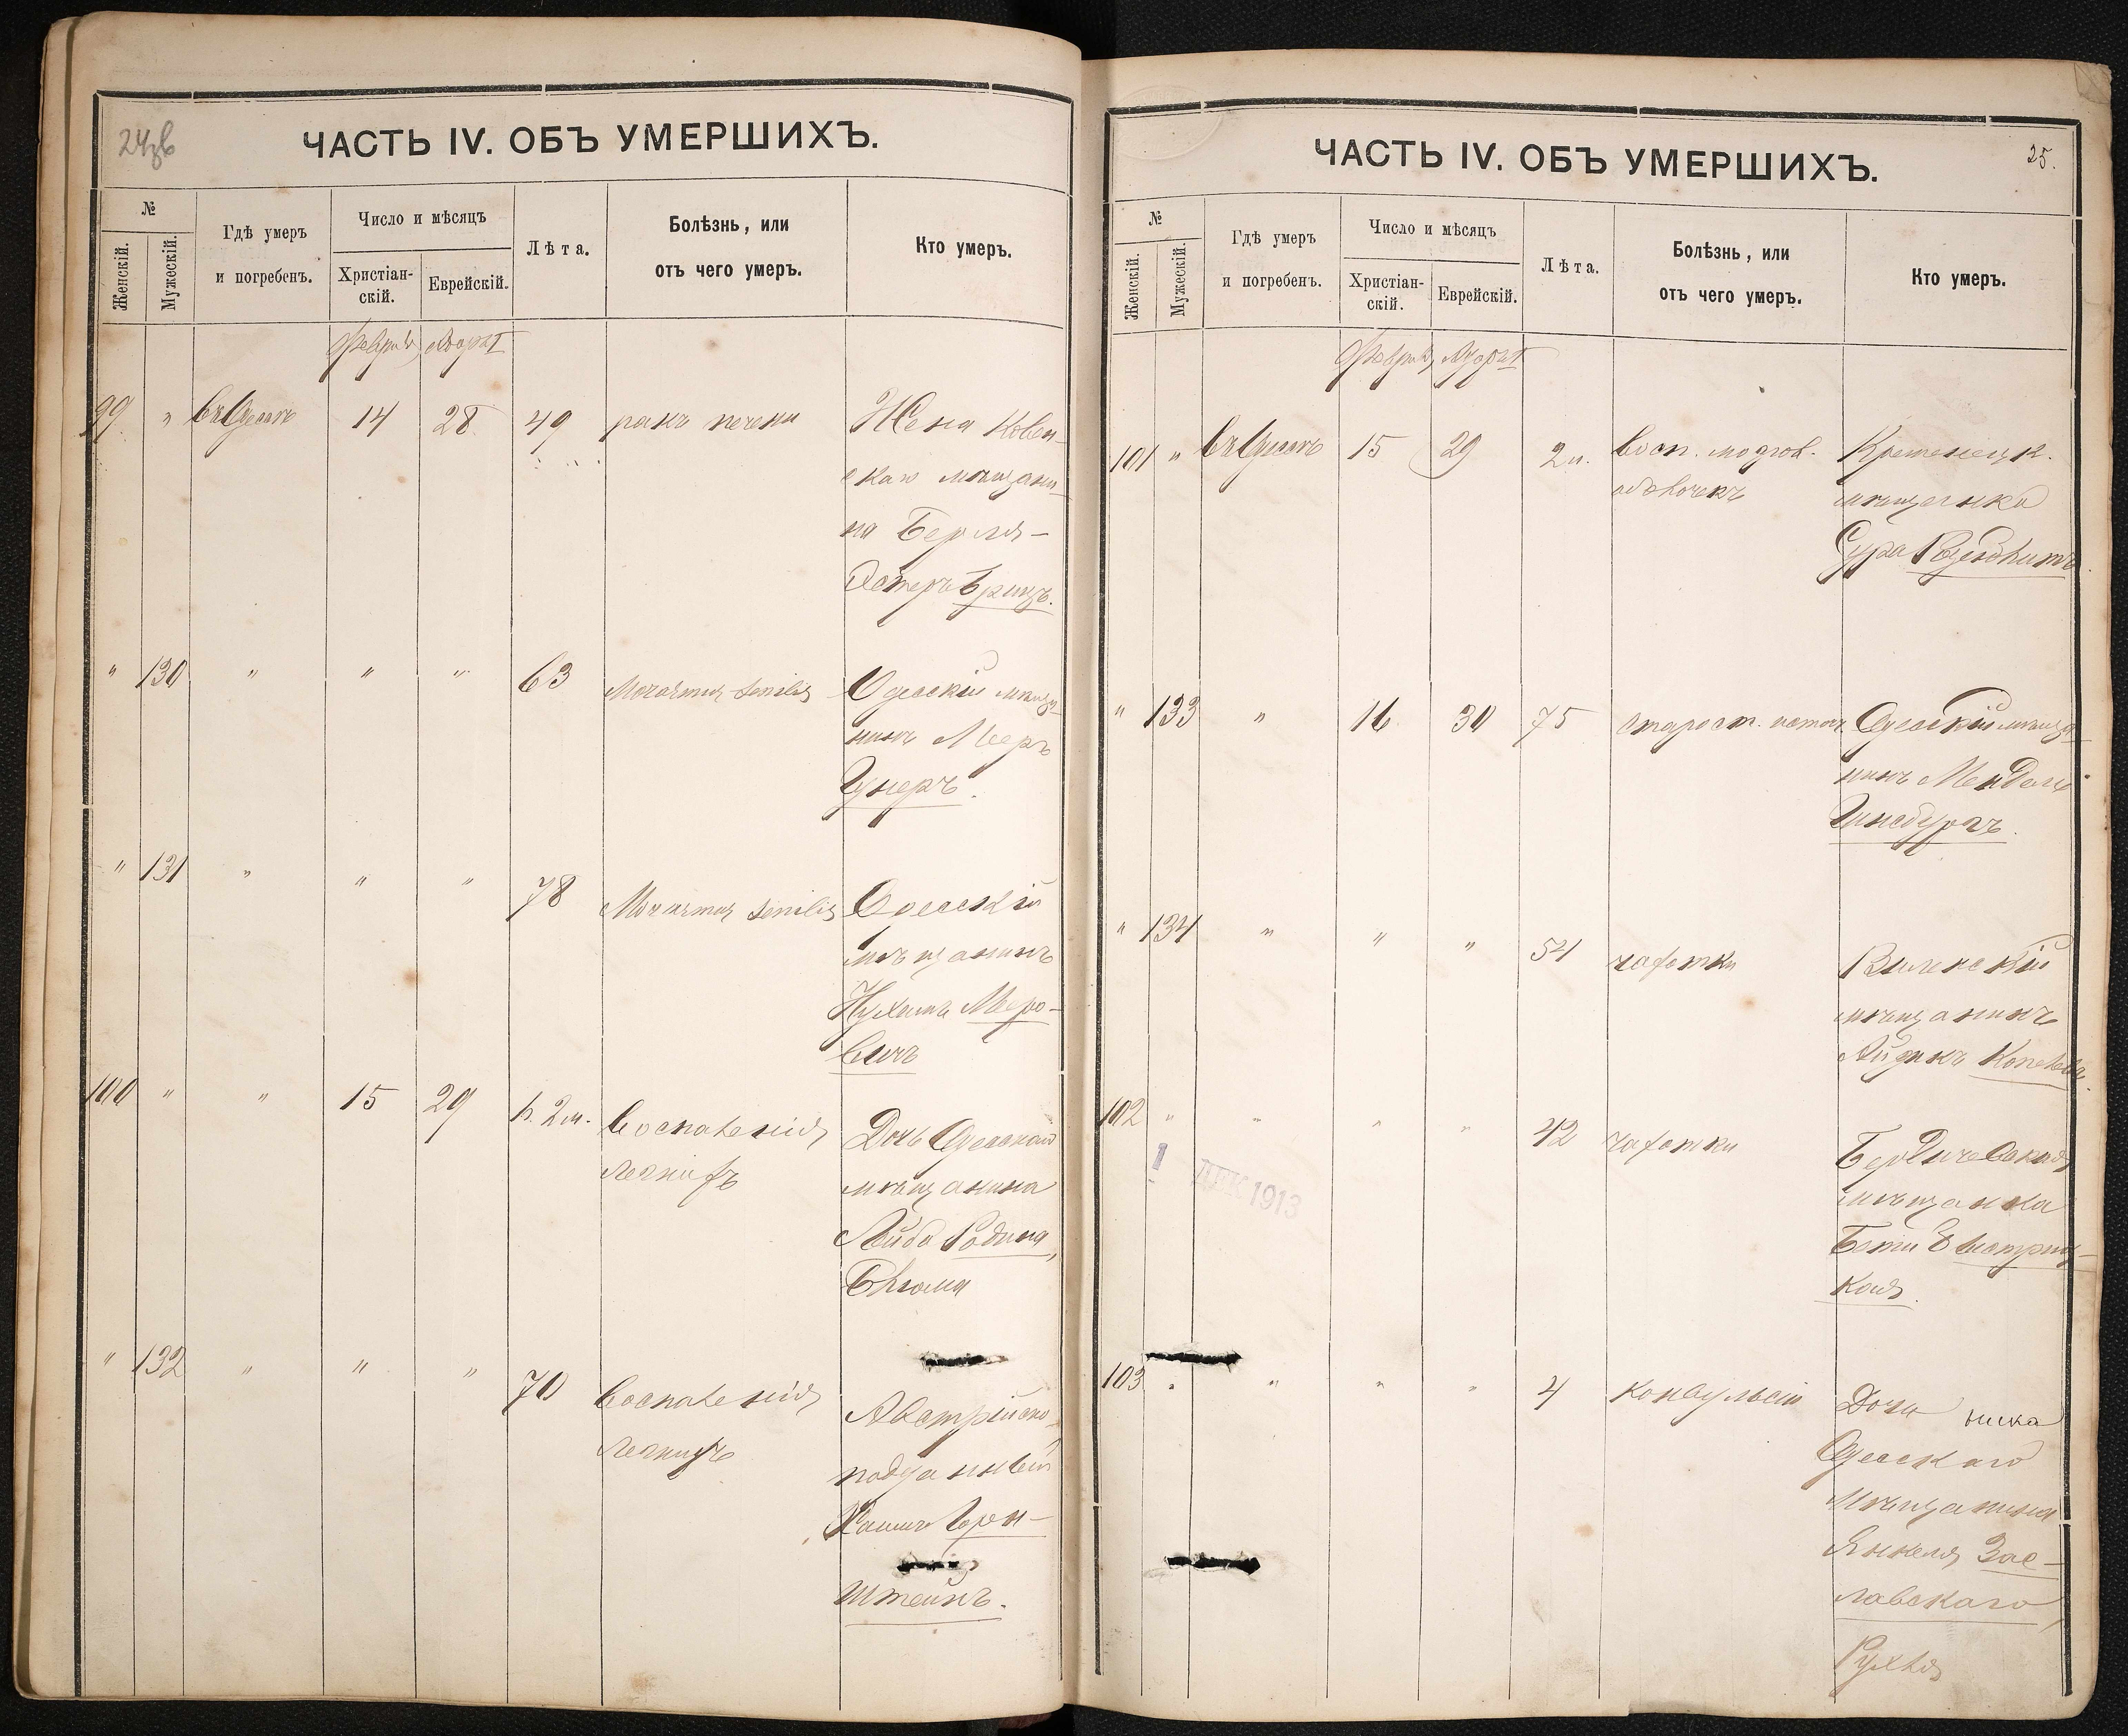 24об
ЧАСТЬ IV. ОБЪ УМЕРШИХЪ.
№
Женскій.
Мужескій.
Гдѣ умеръ
и погребенъ.
Число и мѣсяцъ
Христіан-
скій.
Еврейскій.
Лѣта.
Болѣзнь, или
отъ чего умеръ.
Кто умеръ.
Февраля Адаръ I
99 " въ Одессѣ 14 28 49 ракъ печени Жена Ковен-
скаго мѣщани-
на Берля-
Остеръ Брицъ.
" 130 " " " 63 senilis Одесскій мѣща-
нинъ Мееръ
" 131 " " " 78 senilis Одесскій
мѣщанинъ
Нухимъ Меро-
вичъ
100 " " 15 29 2м. Воспаленія
легкихъ
Дочь Одесскаго
мѣщанина
Лейба Родина,
Блюма
" 132 " " " 70 Воспаленія
легкихъ
Австрійско-
подданный
Горен-
штейнъ.
25.
ЧАСТЬ IV. ОБЪ УМЕРШИХЪ.
№
Женскій.
Мужескій.
Гдѣ умеръ
и погребенъ.
Число и мѣсяцъ
Христіан-
скій.
Еврейскій.
Лѣта.
Болѣзнь, или
отъ чего умеръ.
Кто умеръ.
Февраля Адаръ I
101 " въ Одессѣ 15 29 восп. мозгов.
оболочекъ
Кременецк.
мѣщанка
Сура
" 133 " 16 30 75 старост. истощ. Одесскій мѣща-
нинъ Мендель
Гинсбургъ.
" 134 " " " 54 чахотки Виленскій
мѣщанинъ
Айзикъ
102 " " " " 42 чахотки Бердичевская
мѣщанка
Бети Быстриц-
кая.
1 ДЕК 1913
103 " " " " 4 конвульсій Дочь
Одесскаго
мѣщанина
Янкеля Зас-
лавскаго,
Рухля